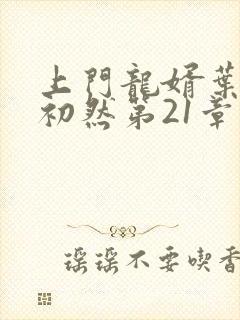 上門龍婿葉
初然第21章
瑶瑶不要喫香